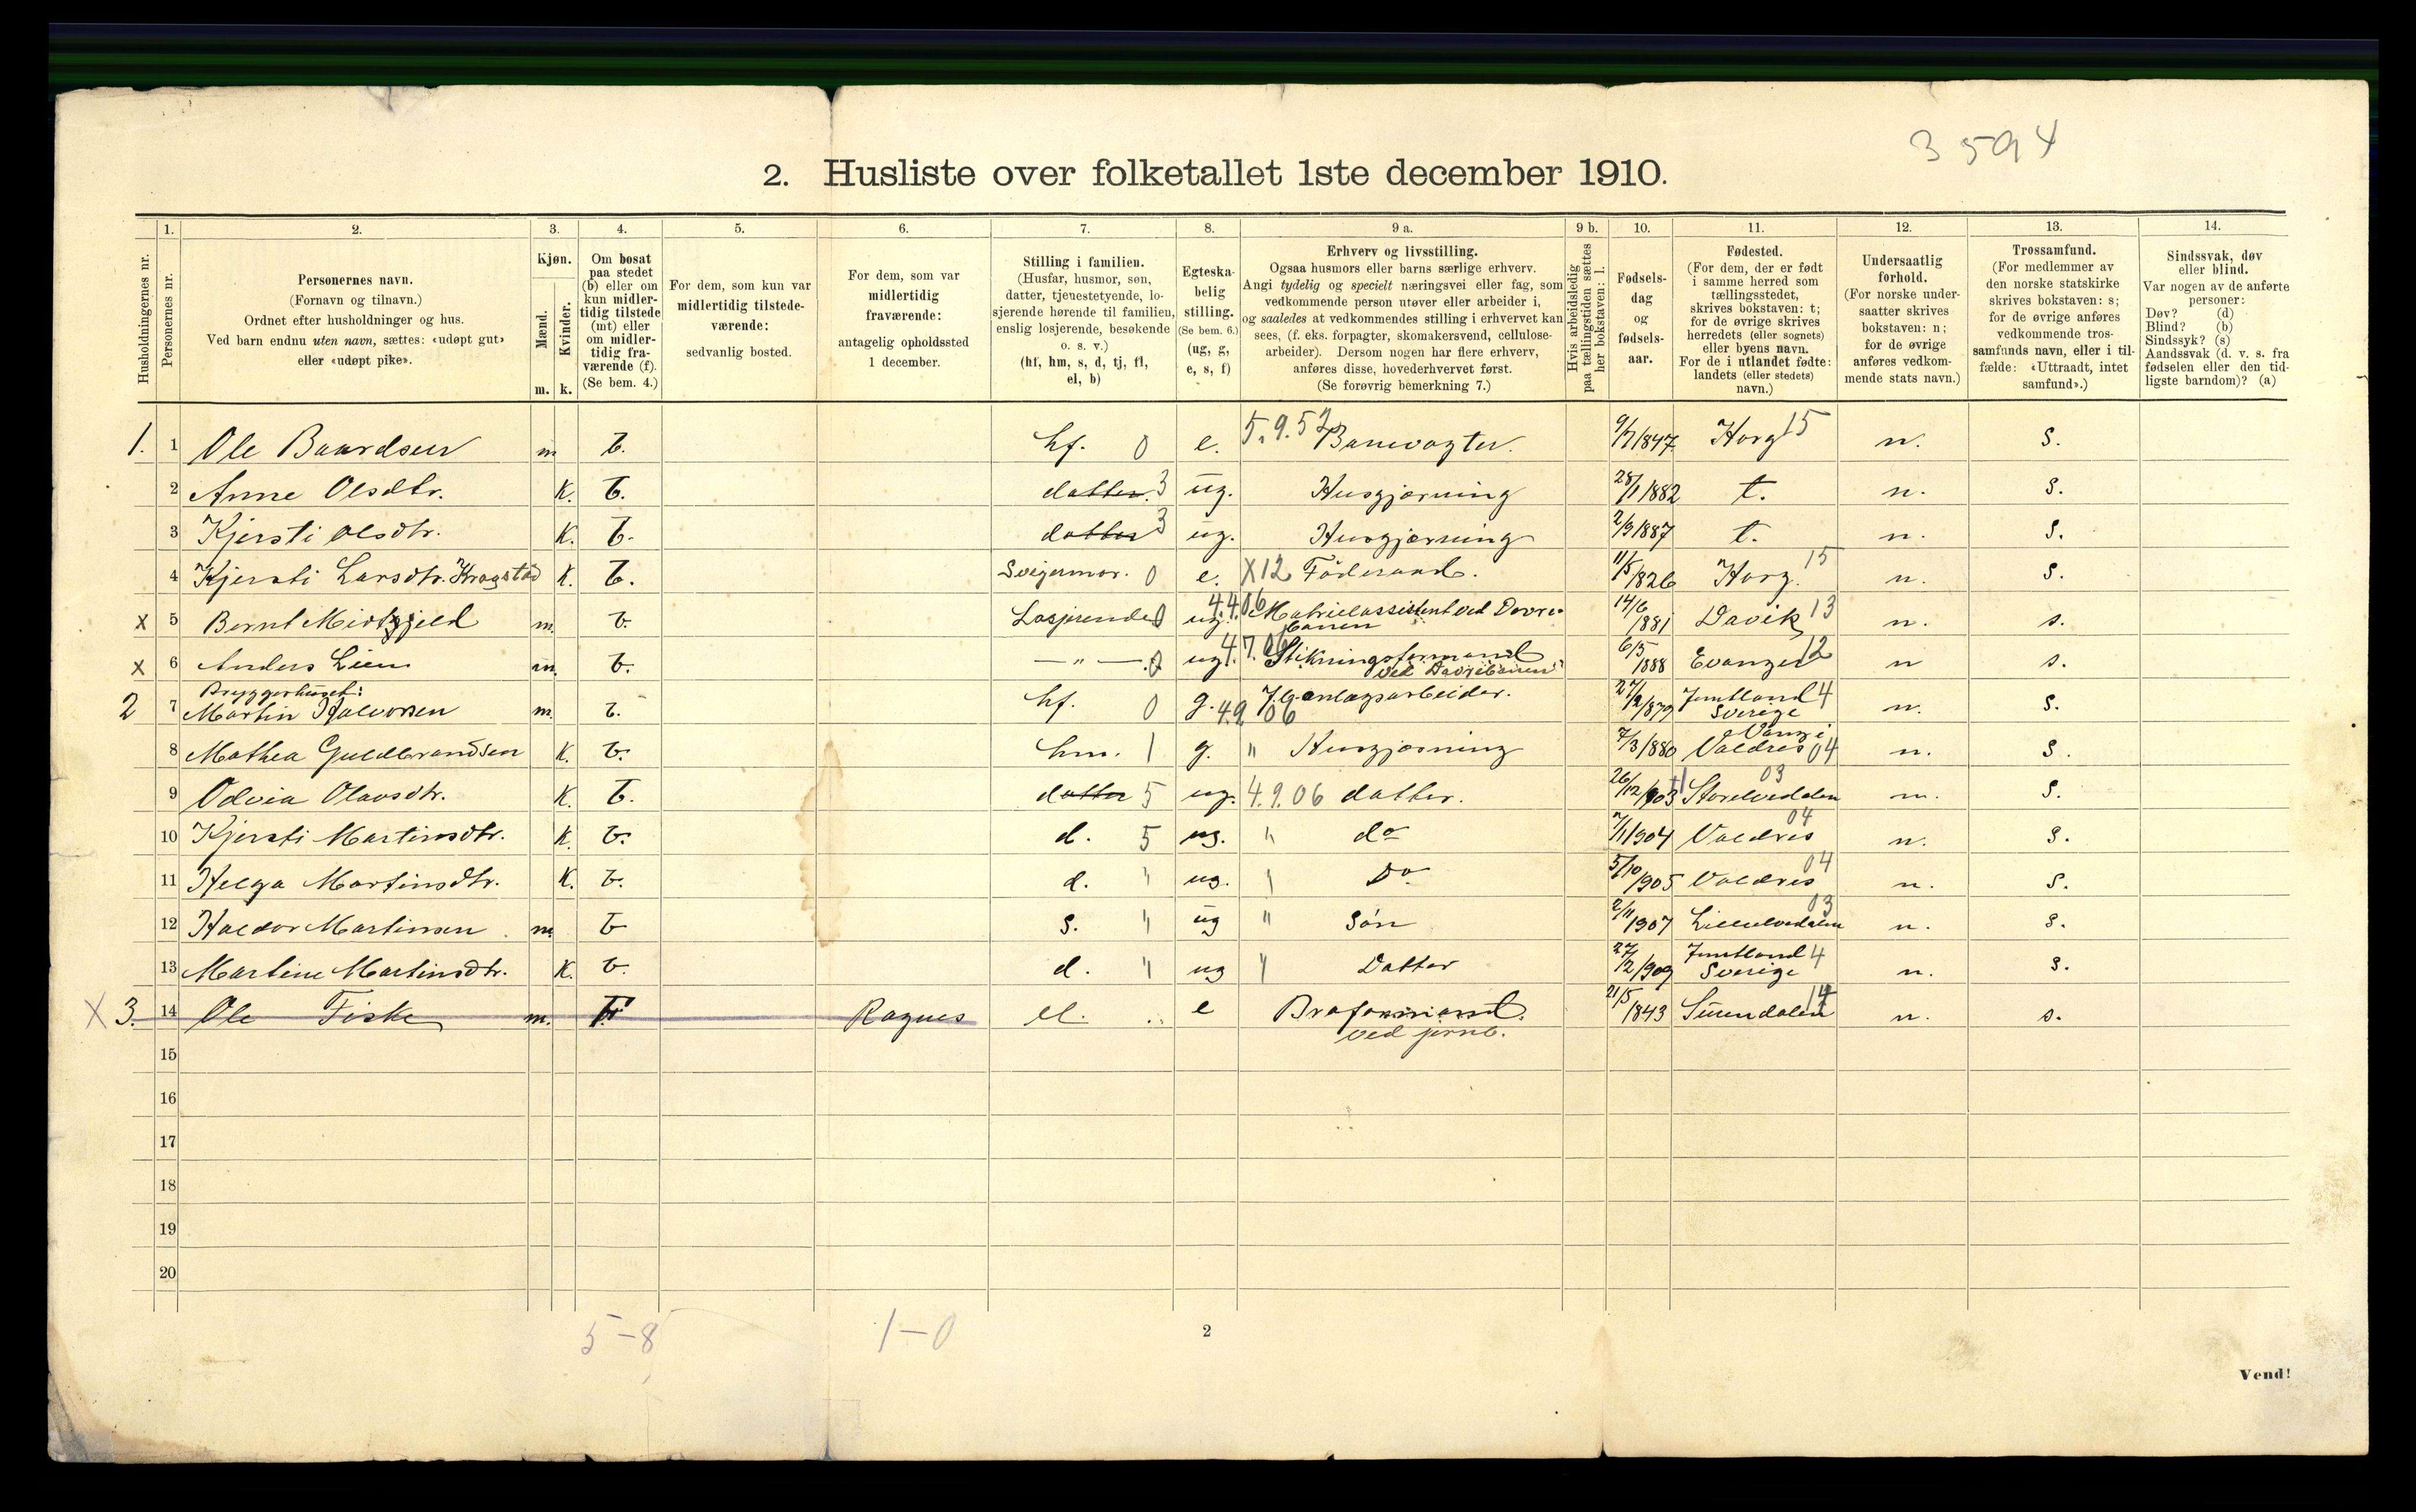 3594
2. Husliste over folketallet 1ste december 1910.
Husholdningernes nr.
1.
Personernes nr.
2.
Personernes navn.
(Fornavn og tilnavn.)
Ordnet efter husholdninger og hus.
Ved barn endnu uten navn, sættes: «udøpt gut»
eller «udøpt pike».
3.
Kjøn.
Mænd.
Kvinder.
m. k.
4.
Om bosat
paa stedet
(b) eller om
kun midler-
tidig tilstede
(mt) eller
om midler-
tidig fra-
værende (f).
(Se bem. 4.)
5.
For dem, som kun var
midlertidig tilstede-
værende:
sedvanlig bosted.
6.
For dem, som var
midlertidig
fraværende:
antagelig opholdssted
1 december.
7.
Stilling i familien.
(Husfar, husmor, søn,
datter, tjenestetyende, lo-
sjerende hørende til familien,
enslig losjerende, besøkende
o. s. v.)
(hf, hm, s, d, tj, fl,
el, b)
8.
Egteska-
belig
stilling.
(Se bem. 6.)
(ug, g,
e, s, f)
9 a.
Erhverv og livsstilling.
Ogsaa husmors eller barns særlige erhverv.
Angi tydelig og specielt næringsvei eller fag, som
vedkommende person utøver eller arbeider i,
og saaledes at vedkommendes stilling i erhvervet kan
sees, (f. eks. forpagter, skomakersvend, cellulose-
arbeider). Dersom nogen har flere erhverv,
anføres disse, hovederhvervet først.
(Se forøvrig bemerkning 7.)
9 b.
Hvis arbeidsledig
paa tællingstiden sættes
her bokstaven: l.
10.
Fødsels-
dag
og
fødsels-
aar.
11.
Fødested.
(For dem, der er født
i samme herred som
tællingsstedet,
skrives bokstaven: t;
for de øvrige skrives
herredets (eller sognets)
eller byens navn.
For de i utlandet fødte:
landets (eller stedets)
navn.)
12.
Undersaatlig
forhold.
(For norske under-
saatter skrives
bokstaven: n;
for de øvrige
anføres vedkom-
mende stats navn.)
13.
Trossamfund.
(For medlemmer av
den norske statskirke
skrives bokstaven: s;
for de øvrige anføres
vedkommende tros-
samfunds navn, eller i til-
fælde: «Uttraadt, intet
samfund».)
14.
Sindssvak, døv
eller blind.
Var nogen av de anførte
personer:
Døv? (d)
Blind? (b)
Sindssyk? (s)
Aandssvak (d. v. s. fra
fødselen eller den tid-
ligste barndom)? (a)
1. 1 Ole Baardsen m b. hf. 0 e. 5.9.52 Banevogter. 9/7 1847 Horg 15 n. s.
2 Anne Olsdtr. k. b. datter. 3 ug. Husgjærning 28/1 1882 t. n. s.
3 Kjersti Olsdtr. k. b. datter 3 ug. Husgjærning 2/9 1887 t. n. s.
4 Kjersti Larsdtr. Krogstad k. b. Svigermor. 0 e. X12 Föderaad. 11/5 1826 Horg. 15 n. s.
x 5 Bernt m. b. Losjerende 0 ug. 4.4.06 Matrielassistent ved Dovre-
banen 14/6 1881 Davik 13 n. s.
x 6 Anders Lien m. b. — " — . 0 ug. 4.7.06 Stikningsformand
ved Dovrebanen 6/5 1888 Evanger 12 n s.
Bryggerhuset:
2 7 Martin Halvorsen m. b. hf. 0 g. 4.9.06 J.b. anlægsarbeider. 27/2 1879 Jemtland 4
Sverige n. s.
8 Mathea Guldbrandsen k. b. hm. 1 g. " Husgjærning 7/3 1880 Vang i
Valdres 04 n. s.
9 Odvia Olavsdtr. k. b. datter 5 ug. 4.9.06 datter. 26/12 1903 Storelvedalen 03 n. s.
10 Kjersti Martinsdtr. k. b. d. 5 ug. " do 7/1 1904 Valdres 04 n. s.
11 Helga Martinsdtr. k. b. d. " ug. " Do 5/10 1905 Valdres 04 n. s.
12 Haldor Martinsen m. b s. " ug " Søn 2/11 1907 Lillelvedalen 03 n. s.
13 Martine Martinsdtr. k. b. d. " ug " Datter 27/2 1909 Jemtland 4
Sverige n. s.
X 3. 14 Ole Fiske m. F Rognes el. e Basformand
ved jernb. 21/5 1843 n. s.
15
16
17
18
19
20
5-8
1-0
2
Vend!